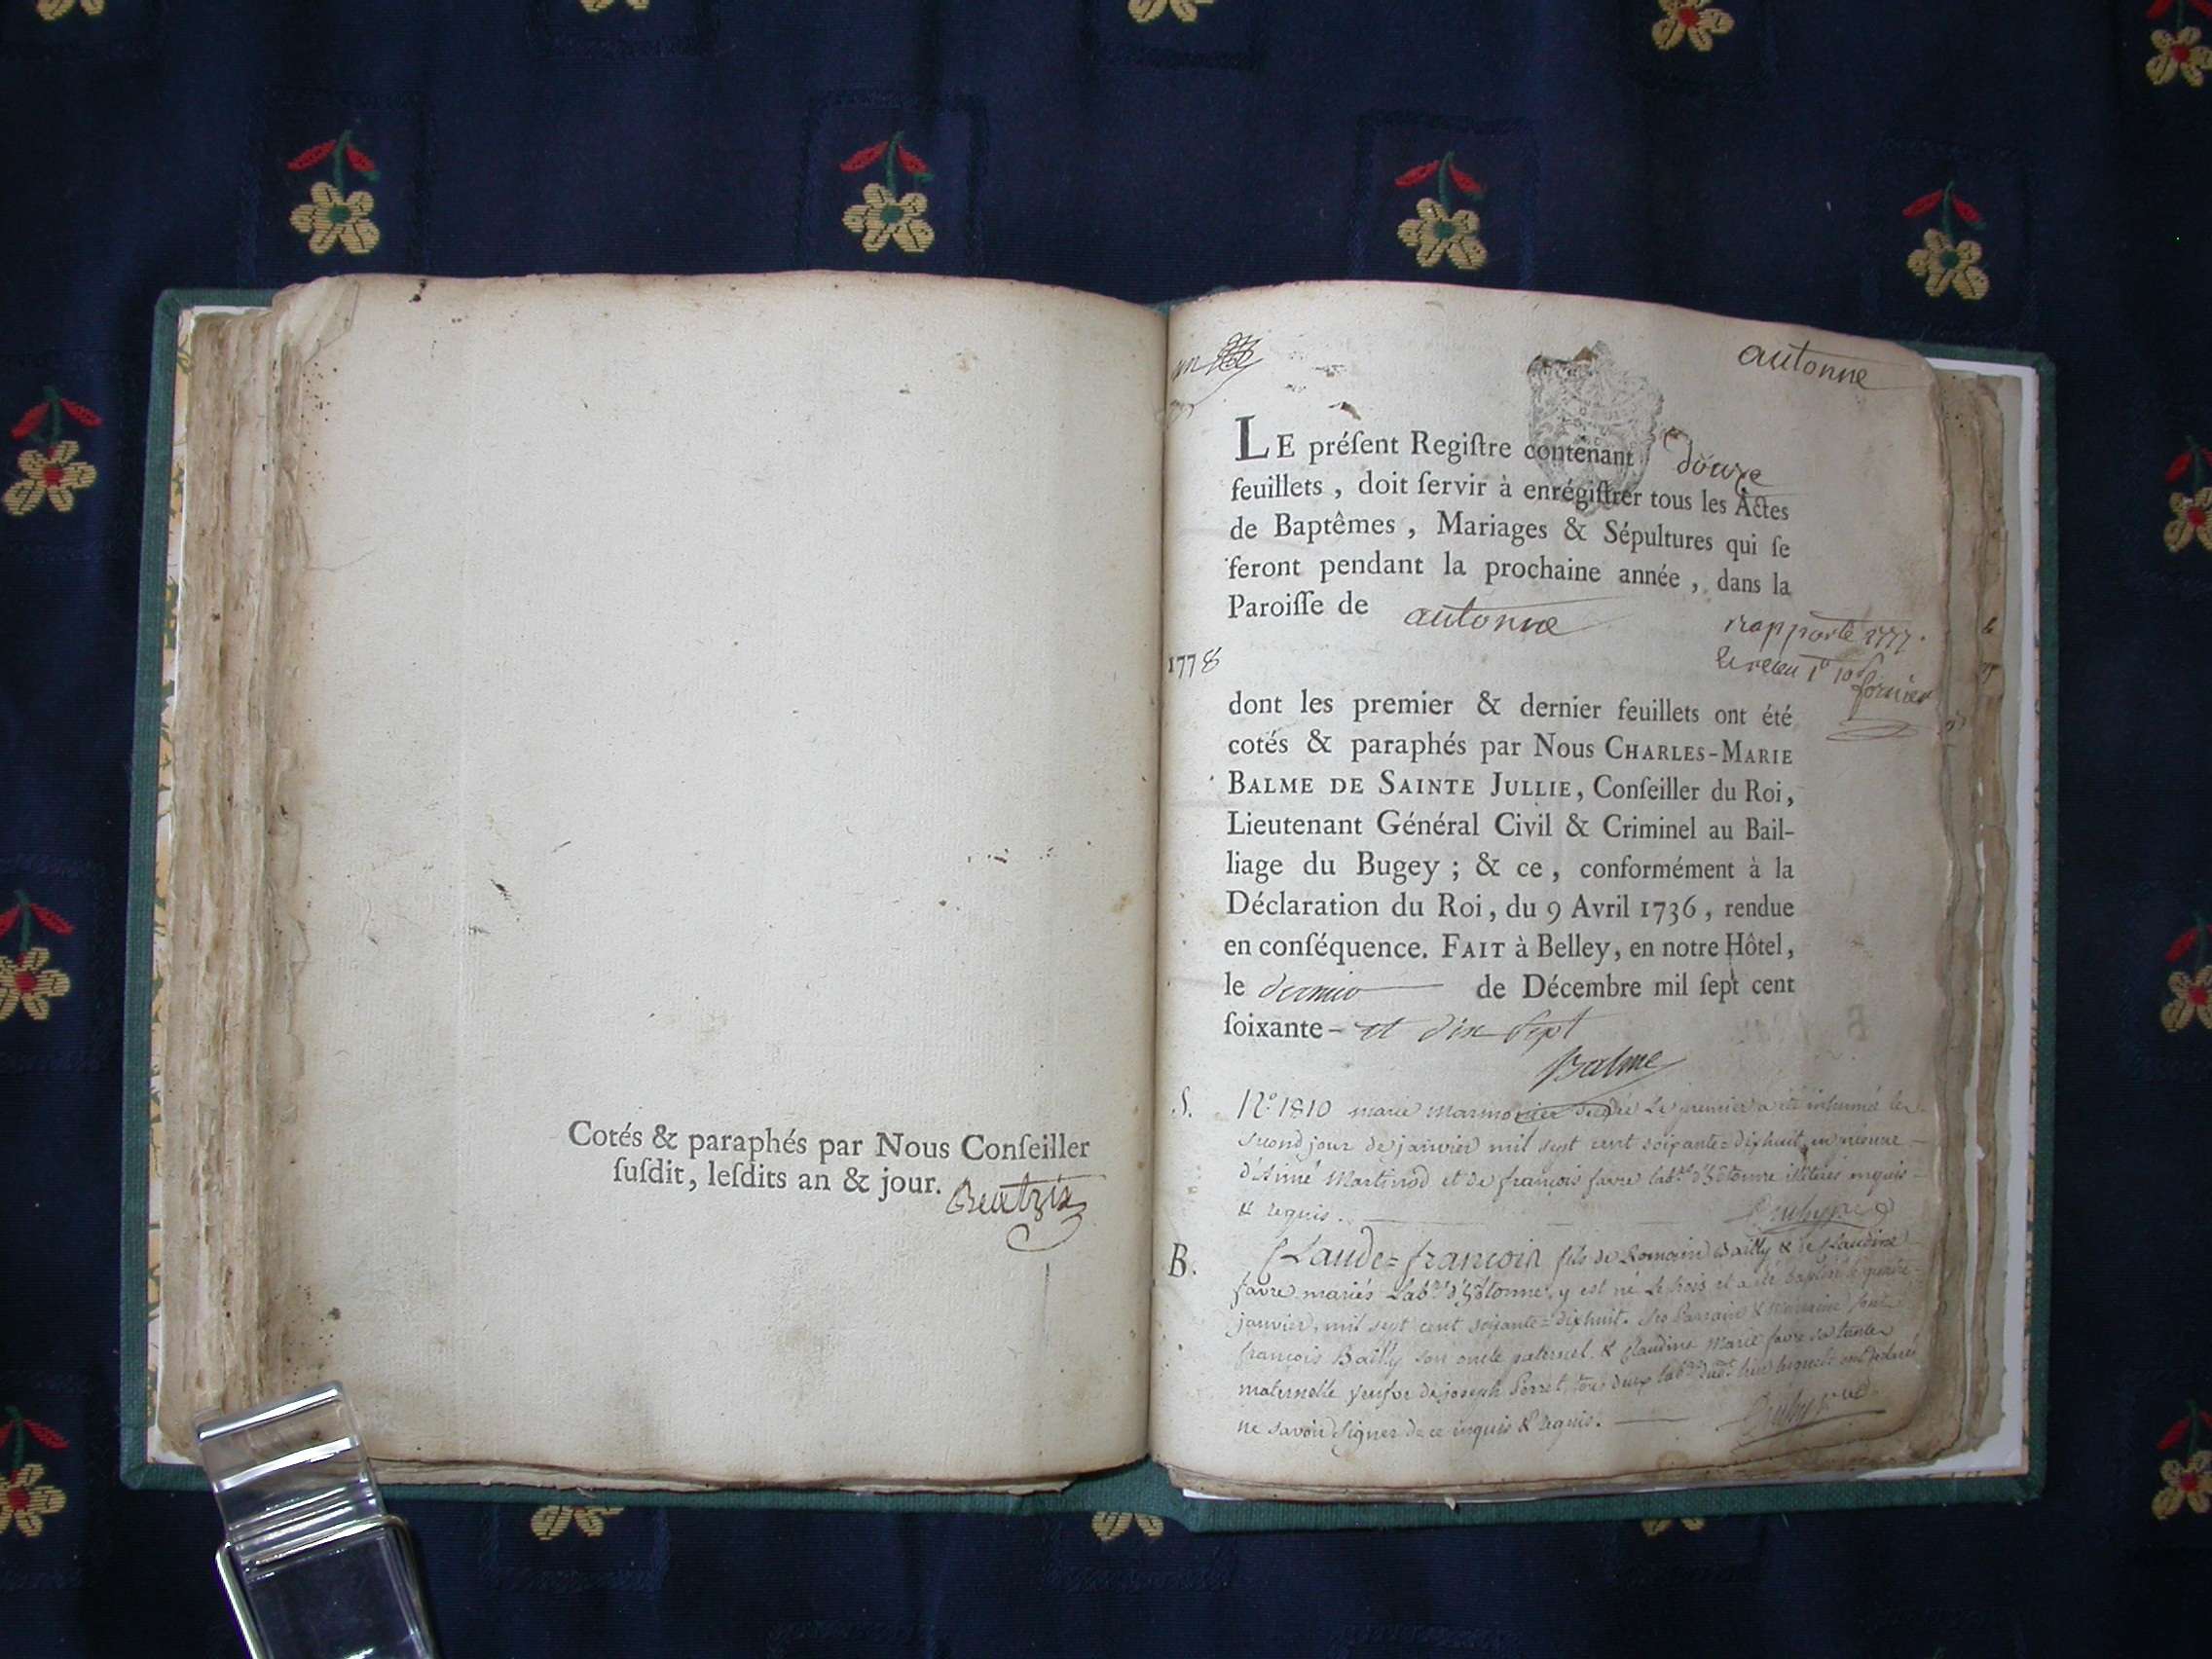 Cotés & paraphés par Nous Conſeiller
ſuſdit, leſdits an & jour.
autonne
LE préſent Regiſtre contenant douze
feuillets, doit ſervir à enrégiſtrer tous les Actes
de Baptêmes, Mariages & Sépultures qui ſe
feront pendant la prochaine année, dans la
Paroiſſe de autonne
rapporté 1777.
1778
dont les premier & dernier feuillets ont été
cotés & paraphés par Nous CHARLES-MARIE
BALME DE SAINTE JULLIE, Conſeiller du Roi,
Lieutenant Général Civil & Criminel au Bail-
liage du Bugey; & ce, conformément à la
Déclaration du Roi, du 9 Avril 1736, rendue
en conſéquence. FAIT à Belley, en notre Hôtel,
le dernier de Décembre mil ſept cent
ſoixante- et dix sept
Balme
S. N.° 1810 marie le premier a été inhumée le
second jour de janvier mil sept cent soixante=dixhuit en
d'Aimé Martinod et de françois favre lab.rs illiterés enquis
& requis.
B. Claude=françois fils de Romain Bailly & de Claudine
favre mariés lab.rs y est né le trois et a été baptisé le
janvier, mil sept cent soixante=dixhuit. Ses Parrain & Marraine sont
françois Bailly son oncle paternel & Claudine Marie favre sa tante
maternelle de joseph Perret, tous deux lab.rs lesquels ont déclaré
ne savoir signer de ce enquis & requis.